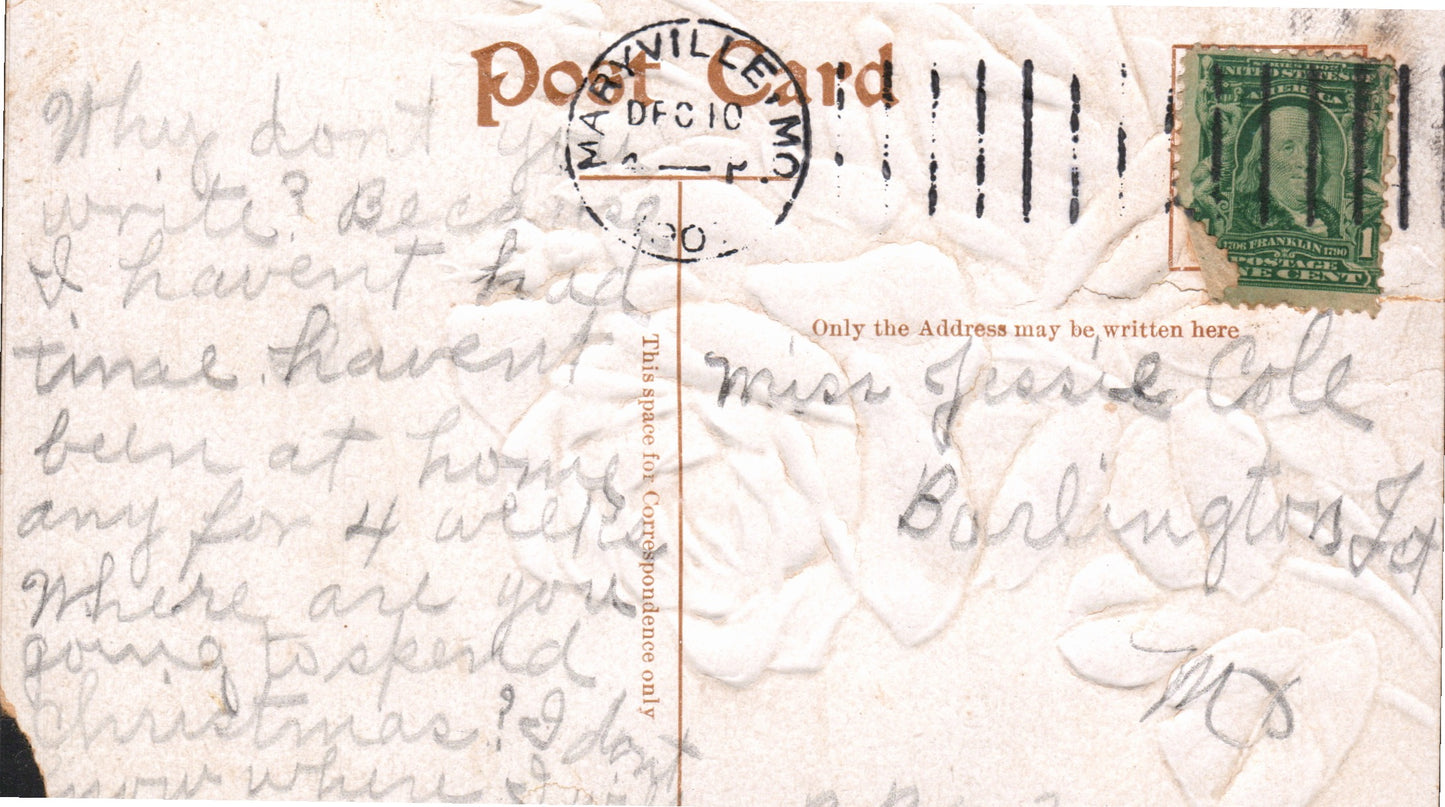 Post Card
MARYVILLE, MO.
DEC 10
190
SERIES 1902
UNITED STATES
AMERICA
1706 FRANKLIN 1790
POSTAGE
ONE CENT
1
Why don't you
write? Because
I havent had
time. havent
been at home
any for 4 weeks
Where are you
going to spend
Christmas? I dont
know where I will
This space for Correspondence only
Only the Address may be written here
Miss Jessie Cole
Burlington Jct
Mo